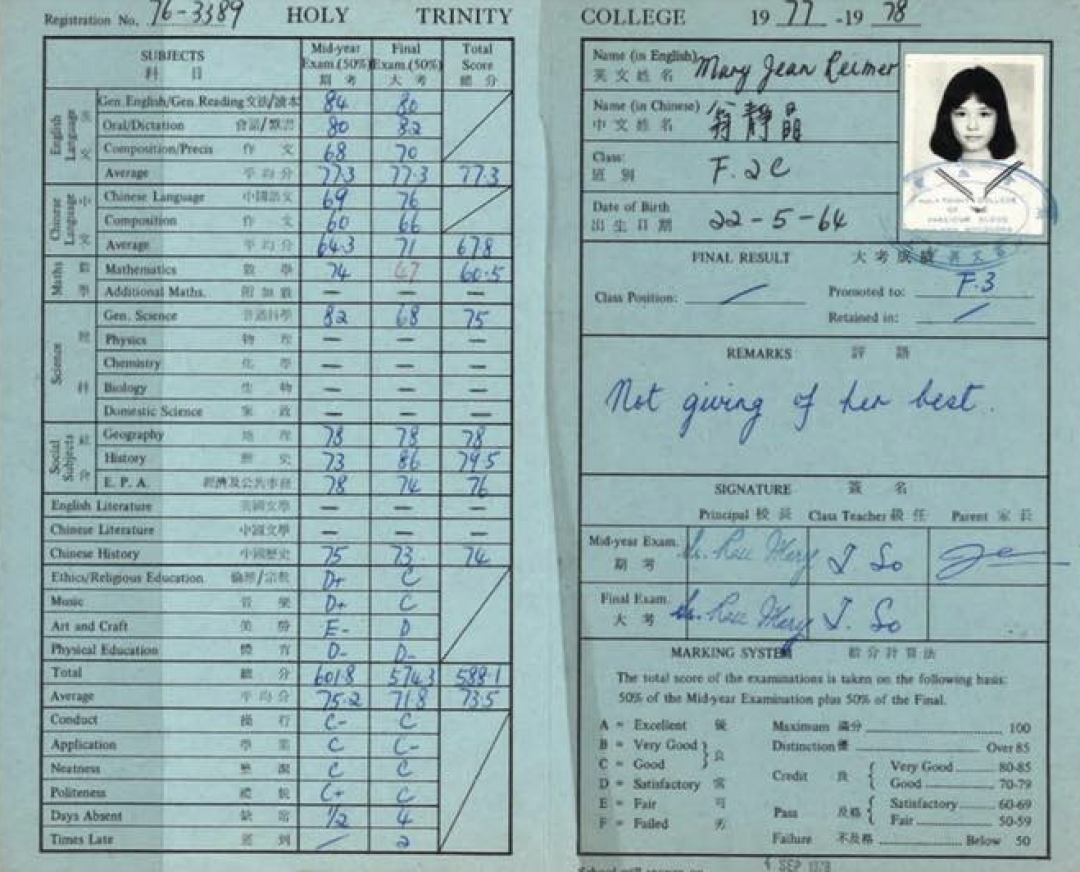 Registration No. 76-3389 HOLY TRINITY
SUBJECTS Mid-year Final Total
Exam.(50%) Exam.(50%) Score
科 目 期 考 大 考 總 分
English Language 英 文
Gen. English/Gen. Reading 文法/讀本 84 80
Oral/Dictation 會話/默書 80 82
Composition/Precis 作 文 68 70
Average 平 均 分 77.3 77.3 77.3
Chinese Language 中 文
Chinese Language 中國語文 69 76
Composition 作 文 60 66
Average 平 均 分 64.3 71 67.8
Maths 數 學
Mathematics 數 學 74 47 60.5
Additional Maths. 附 加 數 — — —
Science 理 科
Gen. Science 普通科學 82 68 75
Physics 物 理 — — —
Chemistry 化 學 — — —
Biology 生 物 — — —
Domestic Science 家 政 — — —
Social Subjects 社 會
Geography 地 理 78 78 78
History 歷 史 73 86 79.5
E. P. A. 經濟及公共事務 78 74 76
English Literature 英國文學 — — —
Chinese Literature 中國文學 — — —
Chinese History 中國歷史 75 73 74
Ethics/Religious Education 倫理/宗教 D+ C
Music 音 樂 D+ C
Art and Craft 美 勞 E- D
Physical Education 體 育 D- D-
Total 總 分 601.8 574.3 588.1
Average 平 均 分 75.2 71.8 73.5
Conduct 操 行 C- C
Application 學 業 C C-
Neatness 整 潔 C C
Politeness 禮 貌 C+ C
Days Absent 缺 席 1/2 4
Times Late 遲 到 / 2
COLLEGE 19 77 -19 78
Name (in English) Mary Jean Reimer
英 文 姓 名
Name (in Chinese) 翁靜晶
中 文 姓 名
Class: F.2C
區 別
Date of Birth 22-5-64
出 生 日 期
FINAL RESULT 大 考 成 績
Class Position: / Promoted to: F.3
Retained in: /
REMARKS 評 語
Not giving of her best.
SIGNATURE 簽 名
Principal 校 長 Class Teacher 級 任 Parent 家 長
Mid-year Exam. J. So
期 考
Final Exam. J. So
大 考
MARKING SYSTEM 給 分 計 算 法
The total score of the examinations is taken on the following basis:
50% of the Mid-year Examination plus 50% of the Final.
A = Excellent 優 Maximum 滿分 100
B = Very Good } 良 Distinction 優 Over 85
C = Good Credit 良 { Very Good 80-85
Good 70-79
D = Satisfactory 常
E = Fair 可 Pass 及格 { Satisfactory 60-69
F = Failed 劣 Fair 50-59
Failure 不及格 Below 50
4 SEP 1978